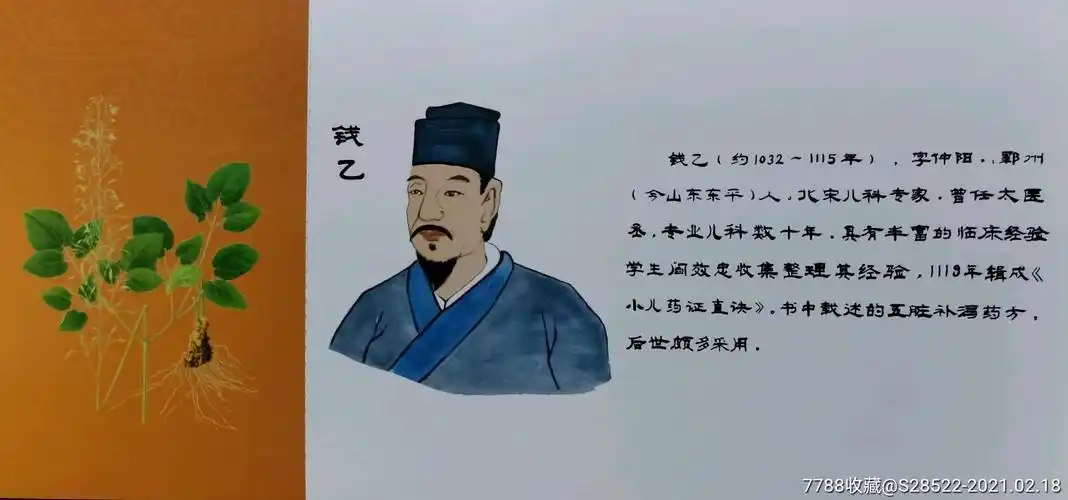 钱
乙
钱乙(约1032~1115年),字仲阳.,郓州
(今山东东平)人,北宋儿科专家.曾任太医
丞,专业儿科数十年.具有丰富的临床经验
学生阎效忠收集整理其经验,1119年辑成《
小儿药证直诀》.书中载述的五脏补泻药方,
后世颇多采用.
7788收藏@S28522-2021.02.18